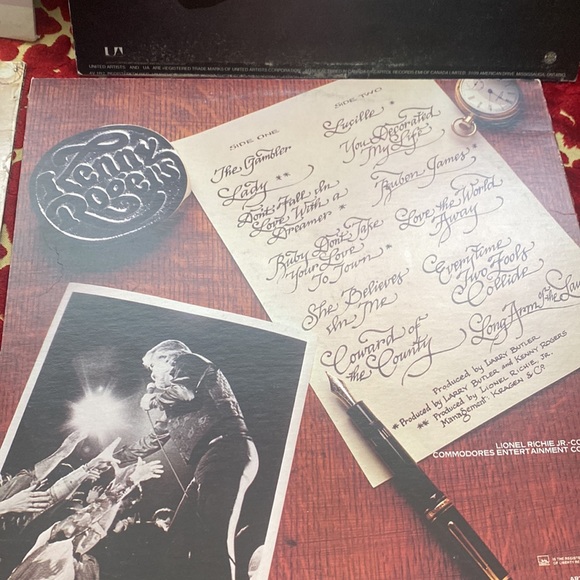 UNITED ARTISTS AND UA ARE REGISTERED TRADE MARKS OF UNITED ARTISTS CORPORATION
Kenny
Rogers
SIDE ONE
The Gambler
Lady **
Don't Fall In
Love With a
Dreamer *
Ruby Don't Take
Your Love
To Town *
She Believes
In Me
Coward of
the County
SIDE TWO
Lucille *
You Decorated
My Life
Reuben James *
Love the World
Away
Everytime
Two Fools
Collide
Long Arm of the Law
Produced by LARRY BUTLER
* Produced by LARRY BUTLER and KENNY ROGERS
** Produced by LIONEL RICHIE, JR.
Management: KRAGEN & CO.
LIONEL RICHIE JR.-CO
COMMODORES ENTERTAINMENT CO
IS THE REGISTE
OF LIBERTY RE